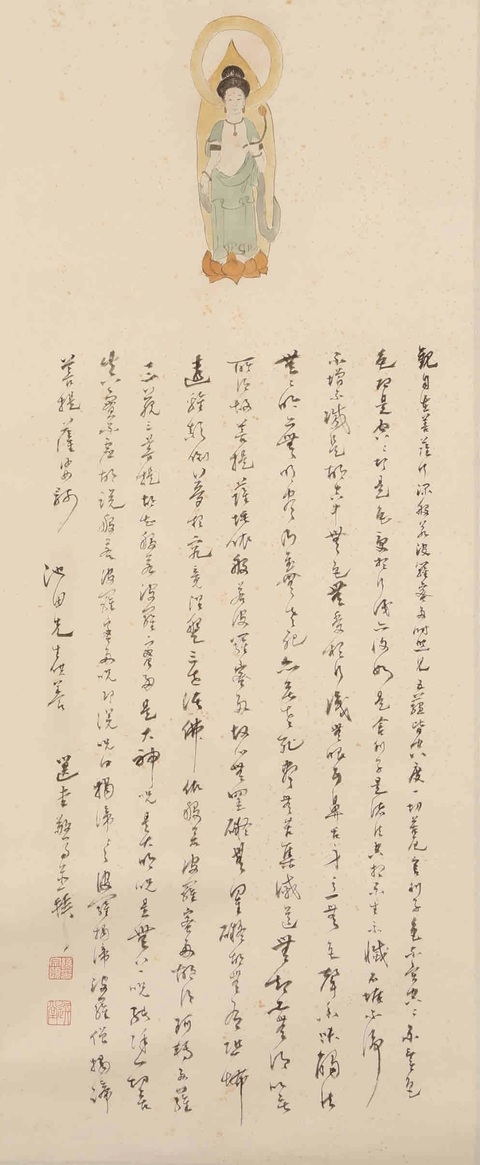 觀自在菩薩行深般若波羅蜜多時照見五蘊皆空度一切苦厄舍利子色不異空空々不異色
色即是空々即是色受想行識亦復如是舍利子是諸法空相不生不滅不垢不淨
不增不減是故空中無色無受想行識無眼耳鼻舌身意無色聲香味觸法
無々明亦無明盡乃至無老死亦無老死盡無苦集滅道無智亦無得以無
所得故菩提薩埵依般若波羅蜜多故心無罣礙無罣礙故無有恐怖
遠離顛倒夢想究竟涅槃三世諸佛依般若波羅蜜多故得阿耨多羅
三藐三菩提故知般若波羅蜜多是大神咒是大明咒是無上咒能除一切苦
真實不虛故說般若波羅蜜多咒即說咒曰揭諦々波羅揭諦波羅僧揭諦
菩提薩婆訶
池田先生